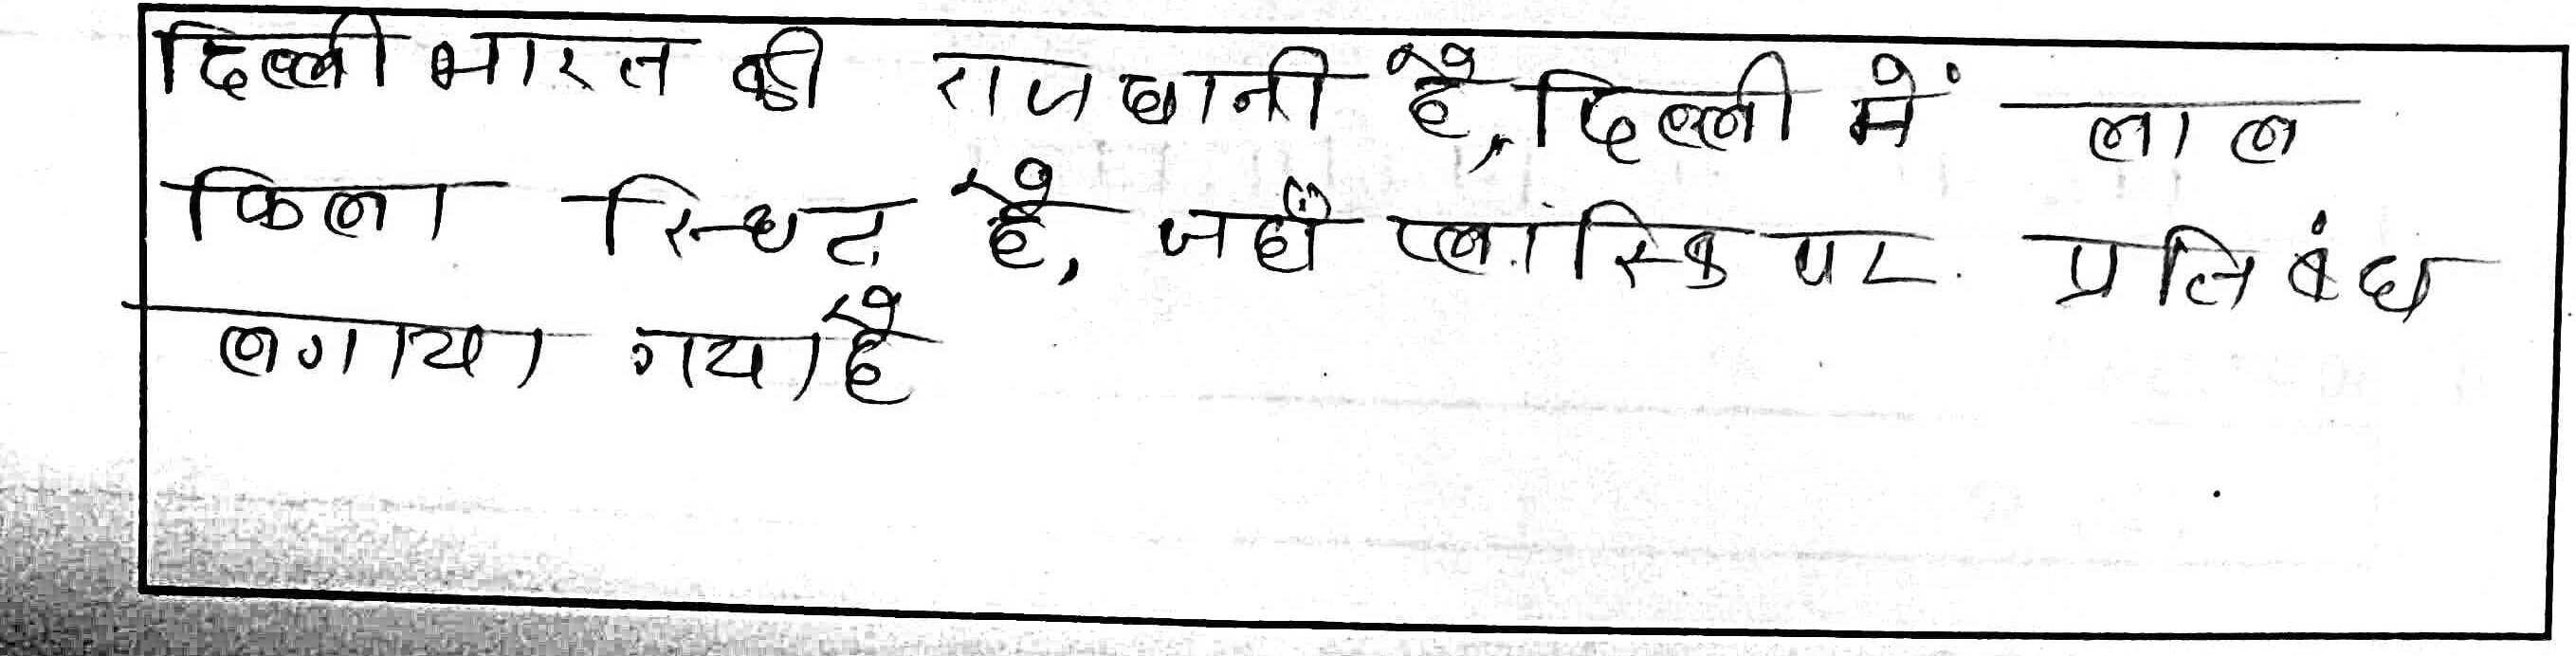 दिल्ली भारत की राजधानी है, दिल्ली में लाल
किला स्थिट है, जहाँ प्लास्कि पर प्रतिबंध
लगाया गया है